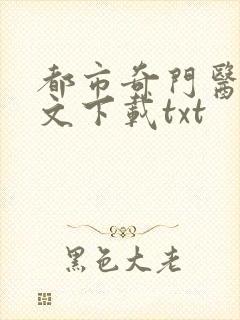 都市奇門醫
文下載txt
黑色大老